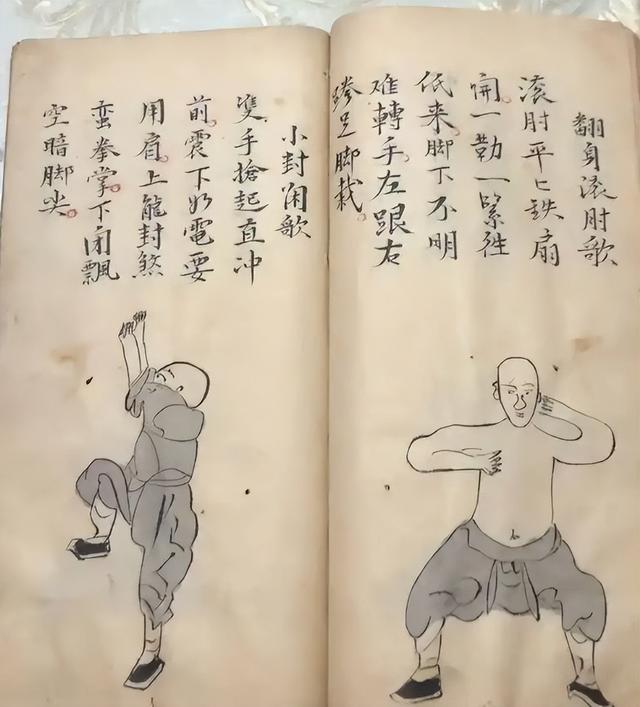 翻身滚肘歌
滚肘平匕鉄扇
開一勒一緊徃
低来脚下不明
难轉手左跟右
跨足脚栽
小封闭歌
雙手搶起直冲
前震下如電要
用肩上能封煞
蛮拳掌下闭飄
空暗脚尖